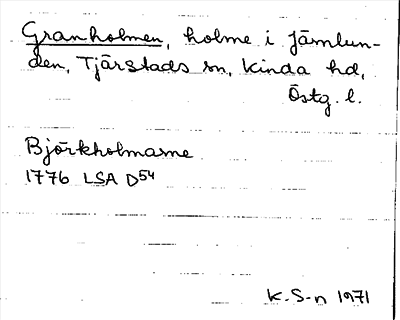 Granholmen, holme i Jämlun-
den, Tjärstads sn, Kinda hd,
Östg. l.
Björkholmarne
1776 LSA D54
K. S-n 1971